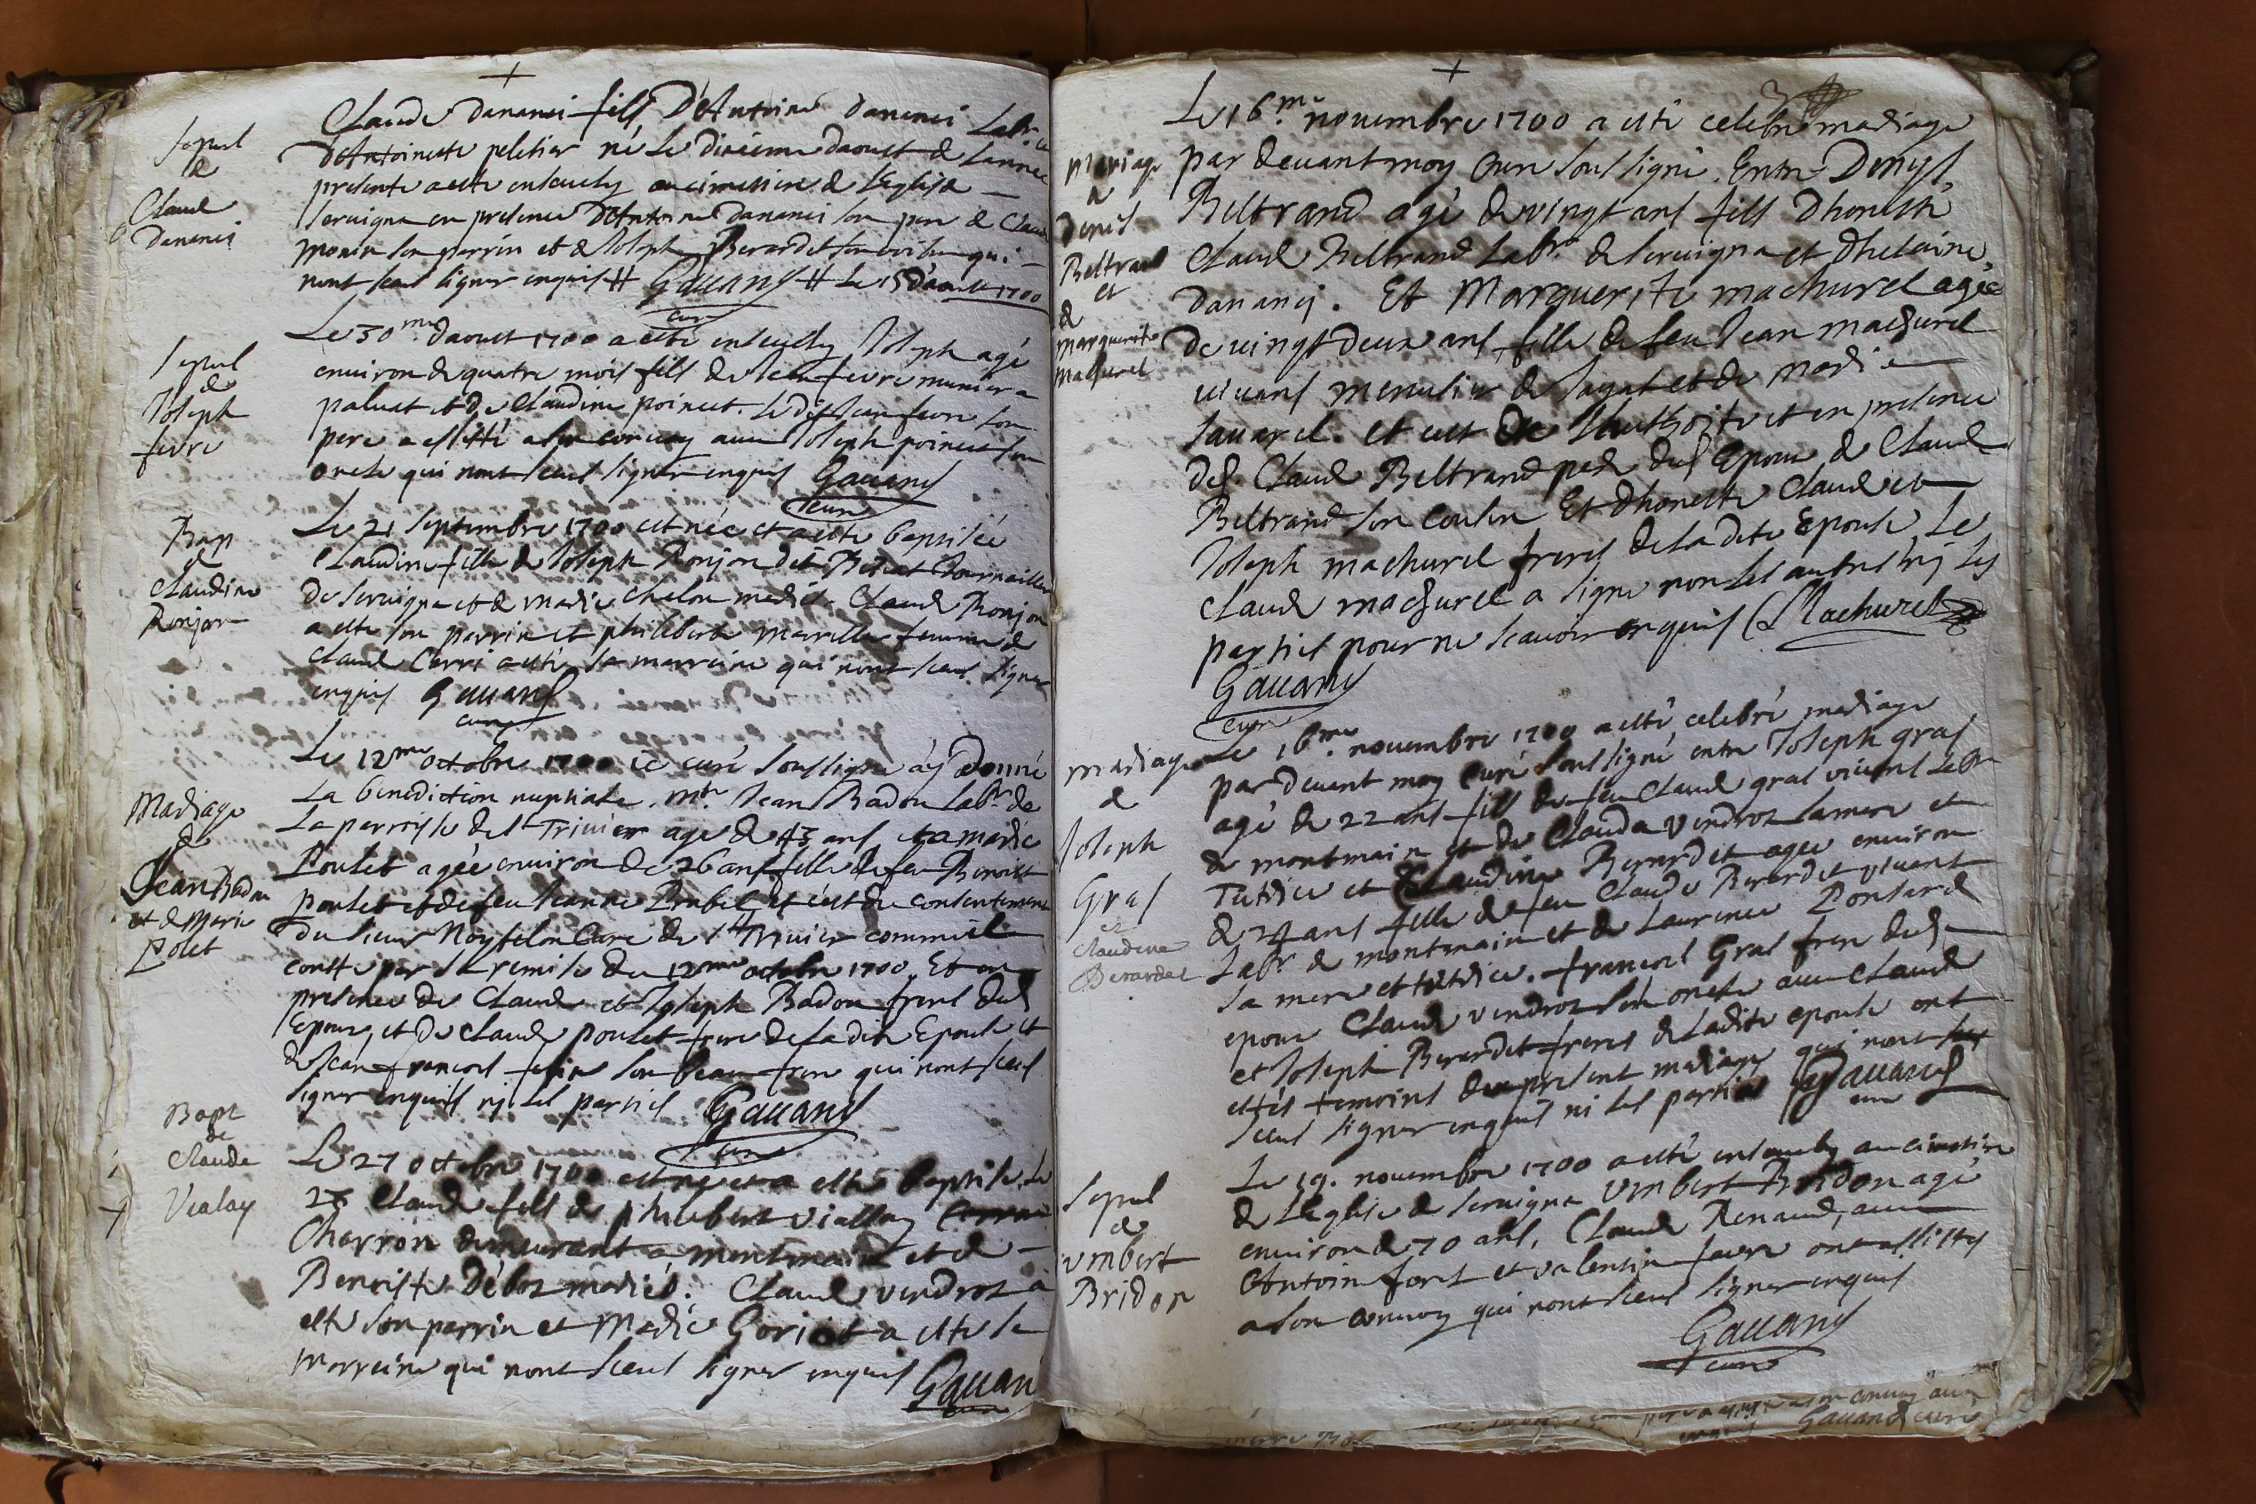 Sepul
de
Claude
Dananci
Claude Dananci fils D'Antoine Dananci Labr. et
D'Antoinette peletier né Le dixieme daoust de Lannée
presente a esté enseuely au cimetiere de L'Eglise
Seruigna en presence D'Antoine Dananci son pere de Claude
Monin son parrin et de Joseph Berardet son voisin qui
nont sceus signer enquis # Gauand # Le 15 daoust 1700
curé
Sepul
de
Joseph
feure
Le 30me daoust 1700 a esté enseuely Joseph agé
enuiron de quatre mois fils de Jean feure munier a
paluat et de Claudine poincet. Le dit Jean feure son
pere a assisté a son conuoy auec Joseph poincet son
oncle qui nont sceus signer enquis Gauand
curé
Bap
de
Claudine
Ronjon
Le 21 septembre 1700 est née et a esté baptisée
Claudine fille de Joseph Ronjon dit Journaillier
de Seruigna et de Marie Chalon mariés. Claude Ronjon
a esté son parrin et philiberte femme de
Claude Carri a esté sa marreine qui nont sceus signer
enquis Gauand
curé
Mariage
de
Jean Badou
et de Marie
Polet
Le 12me octobre 1700 ie curé soussigné ay Donné
La benediction nuptiale Jean Badou Labr. de
La parroisse de St Triuier agé de 43 ans et a Marie
Poulet agée enuiron de 26 ans fille de feu Benoist
poulet et de feu Jeanne et c'est du consentement
du sieur Curé de St Triuier comme il
conste par sa remise du 12me octobre 1700. Et en
presence de Claude et Joseph Badou freres dud
Epoux, et de Claude poulet frere de La dite Epouse et
de Jean francois son beau frere qui nont sceus
signer enquis ny Les parties Gauand
curé
Bapt
de
Claude
Vialay
Le 27 octobre 1700 est né et a esté baptisé Le
28 Claude fils de philibert Viallay
Charron demeurant a montmain et de
Benoiste Débost mariés. Claude Vendroz a
esté son parrin et Marie Goriot a esté sa
marreine qui nont sceus signer enquis Gauand
curé
Mariage
de
Denis
Beltrand
et
de
Marguerite
Machurel
Le 16me nouembre 1700 a esté celebré mariage
par deuant moy Curé soussigné. Entre Denys
Beltrand agé de vingt ans fils d'honeste
Claude Beltrand Labr. de Seruigna et d'helaine
Dananci. Et Marguerite Machurel agée
de vingt deux ans fille de feu Jean Machurel
viuant menusier de Sagat et de Marie
Sauarel. et c'est de L'authorité et en presence
des. Claude Beltrand pere dud Epoux de Claude
Beltrand son cousin Et d'honeste Claude et
Joseph Machurel freres de La dite Epouse Le
Claude Machurel a signé non Les autres nij Les
parties pour ne scauoir enquis C Machurel
Gauand
curé
Mariage
de
Joseph
Gras
et
Claudine
Berardet
Le 16me nouembre 1700 a esté celebré mariage
par deuant moy Curé soussigné entre Joseph gras
agé de 22 ans fils de feu Claude gras viuant Labr
de montmain et de Clauda Vendroz sa mere et
Tutrice et Claudine Berardet agée enuiron
de 24 ans fille de feu Claude Berardet viuant
Labr de montmain et de Laurence Ponsard
sa mere et tutrice. francois Gras frere dud
epoux Claude Vendroz son oncle auec Claude
et Joseph Berardet freres de Ladite epouse ont
estés temoins du present mariage qui nont
sceus signer enquis ni Les parties Gauand
curé
Sepul
de
Vmbert
Bridon
Le 19. nouembre 1700 a esté enseuely au cimetiere
de L'eglise de Seruigna Vmbert Bridon agé
enuiron de 70 ans, Claude Renaud, auec
Antoine fort et Valentin feure ont assistés
a son conuoy qui nont sceus signer enquis
Gauand
curé
Gauand curé